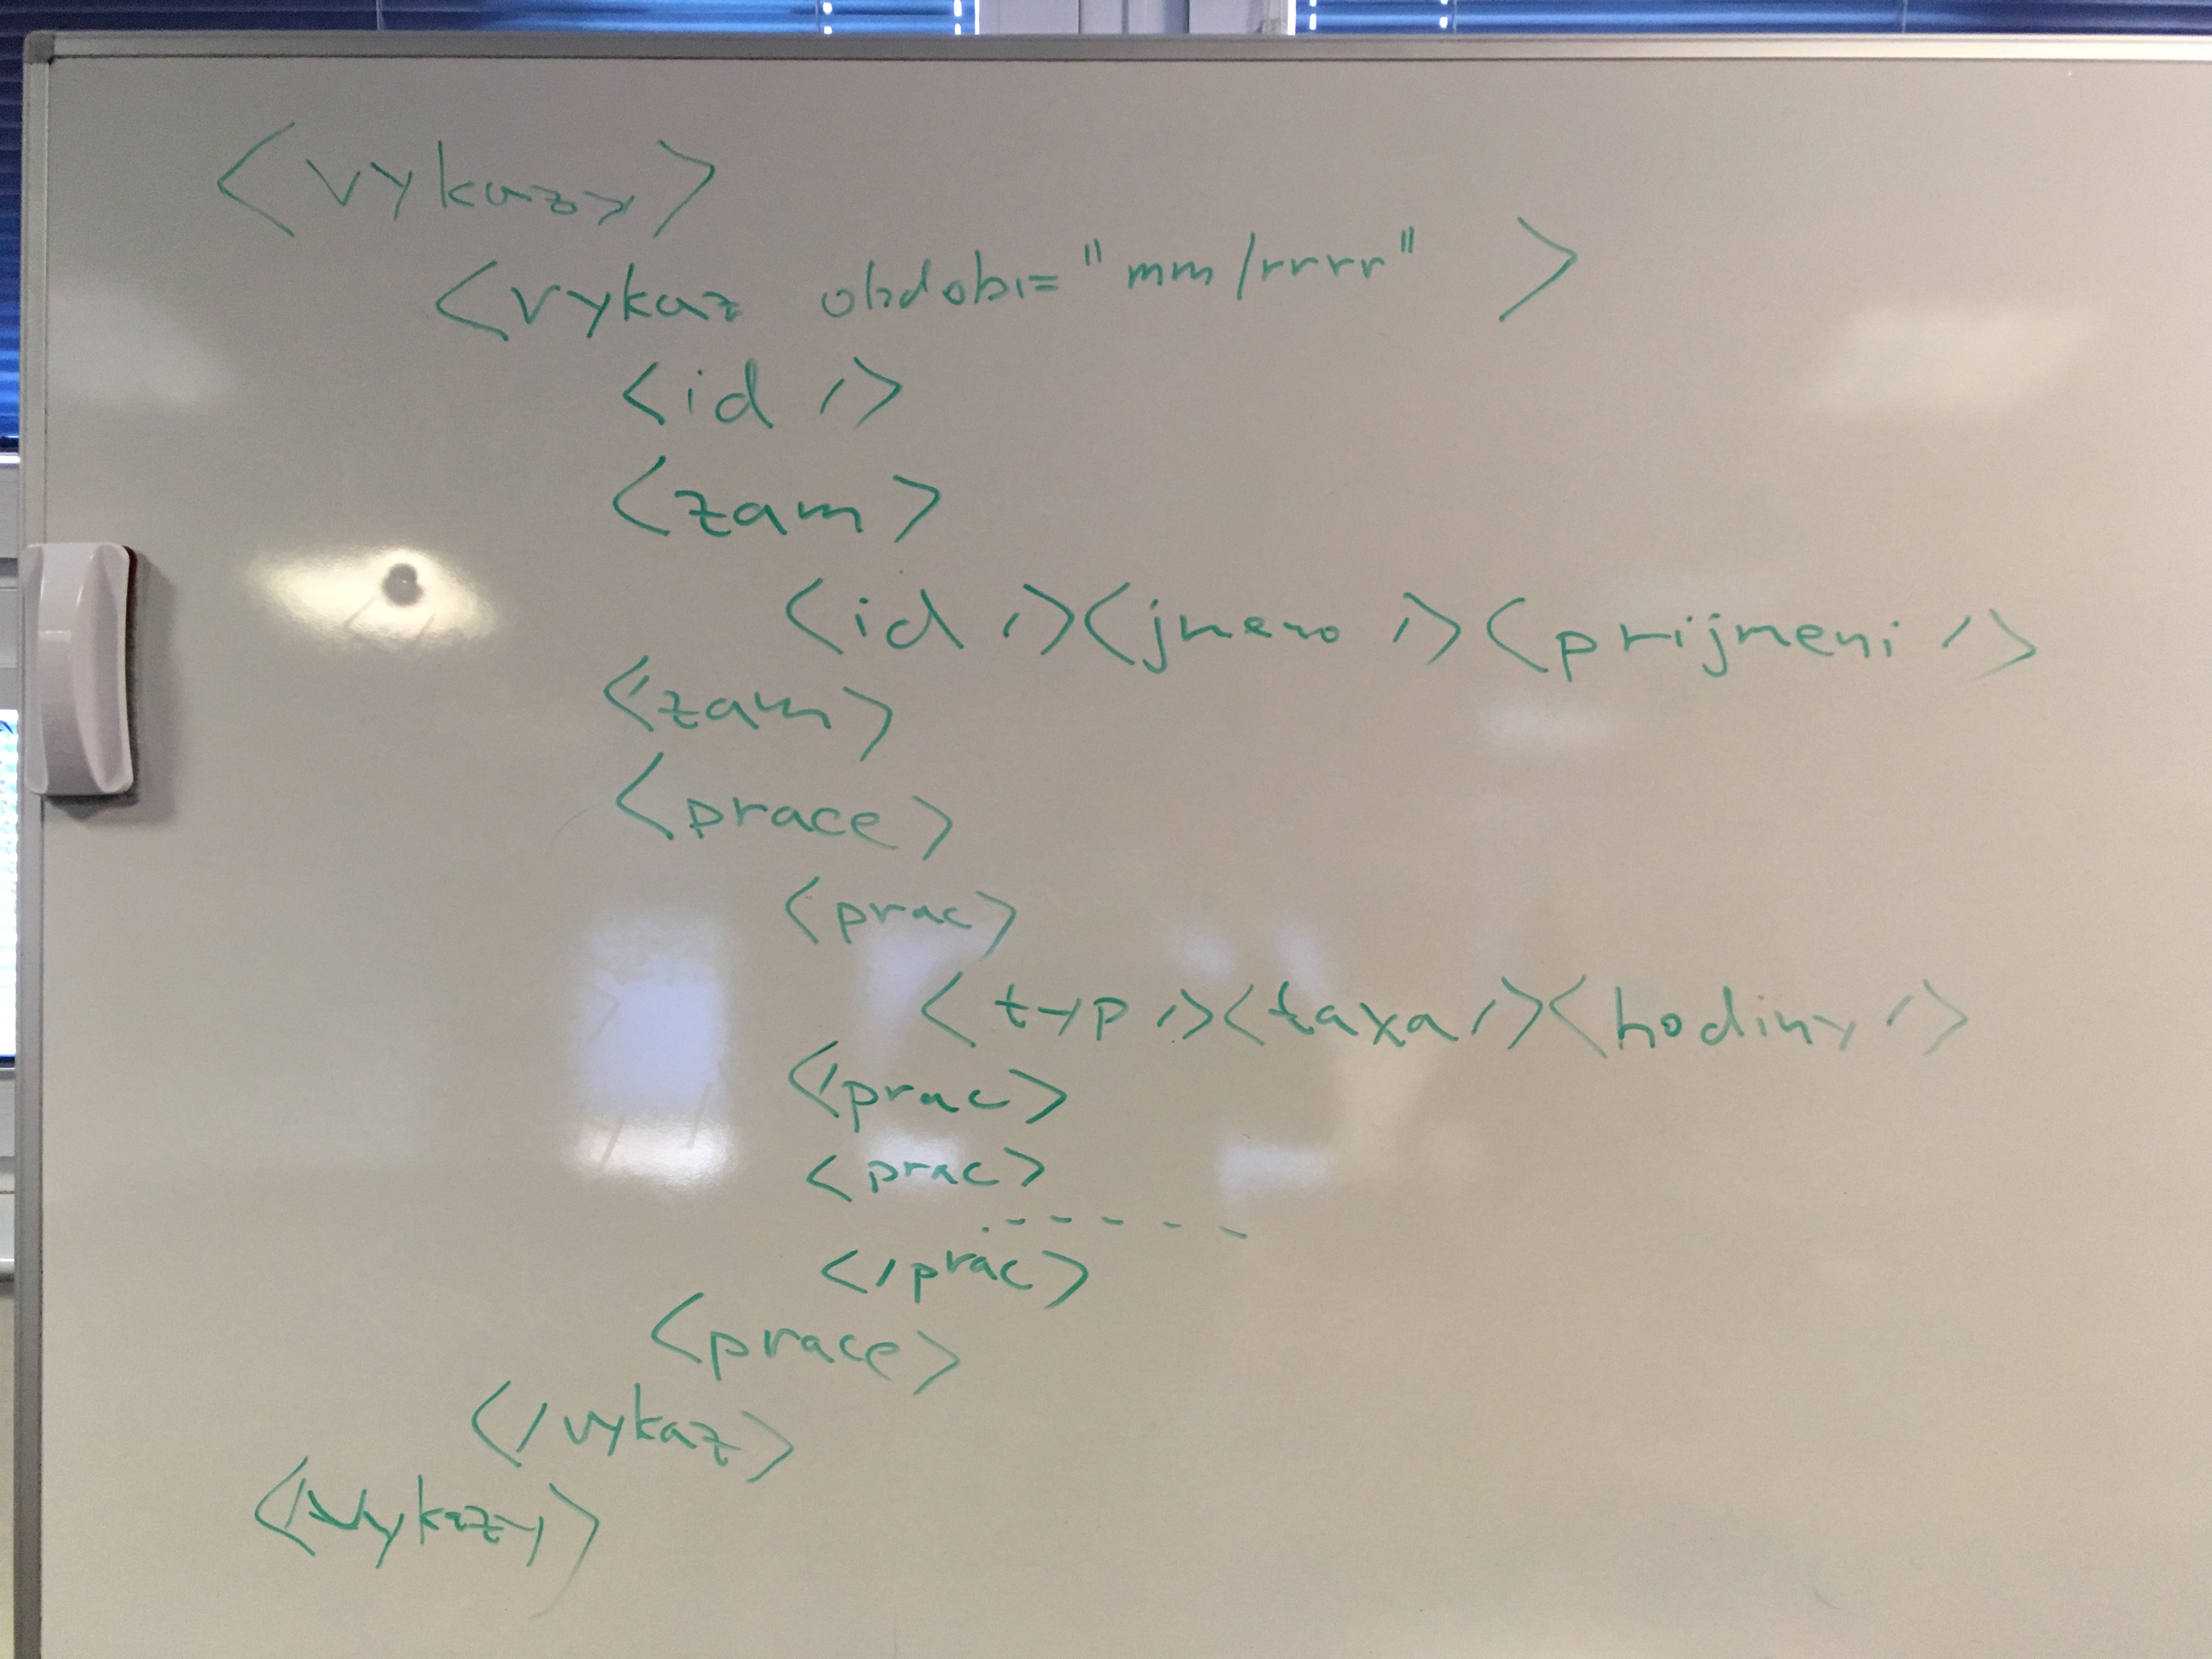 <vykazy>
<vykaz obdobi="mm/rrrr" >
<id />
<zam>
<id /><jmeno /><prijmeni />
</zam>
<prace>
<prac>
<typ /><taxa /><hodiny />
</prac>
<prac>
.-----
</prac>
<prace>
</vykaz>
</vykazy>